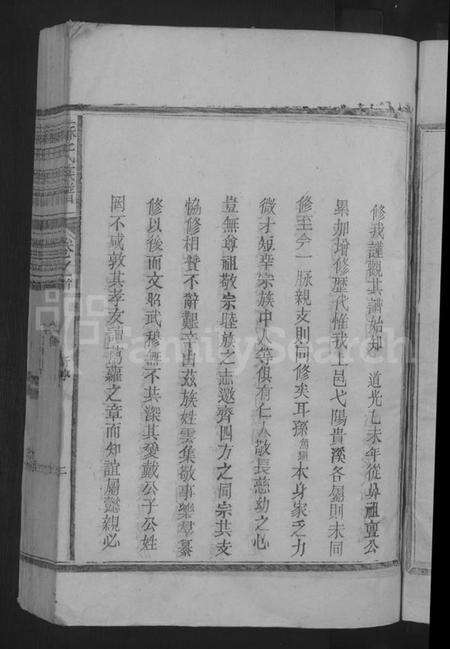 修我謹觀其譜始知 道光乙未年從鼻祖亶公
累加增修歷代惟我一邑弋陽貴溪各屬則未同
修至今一脉親支則同修矣耳孫 本身家乏力
微才短幸宗族中人等俱有仁人敬長慈幼之心
豈無尊祖敬宗睦族之志邀齊四方之同宗共支
恊修相贊不辭艱辛由茲族姓雲集敬事樂羣纂
修以後而文昭武穆無不共深其愛戴公子公姓
罔不咸敦其孝友誦葛藟之章而知誼屬懿親必
卷之首
FamilySearch